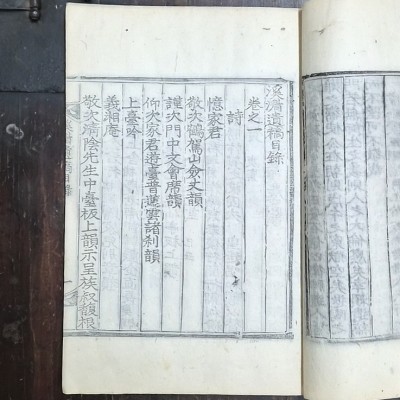 溪齋遺稿目錄
卷之一
詩
憶家君
敬次鶴駕山僉丈韻
謹次門中文會席韻
仰次家君遊臺普蓮雲諸刹韻
上臺吟
義湘庵
敬次淸陰先生中臺板上韻示呈族叔馥根